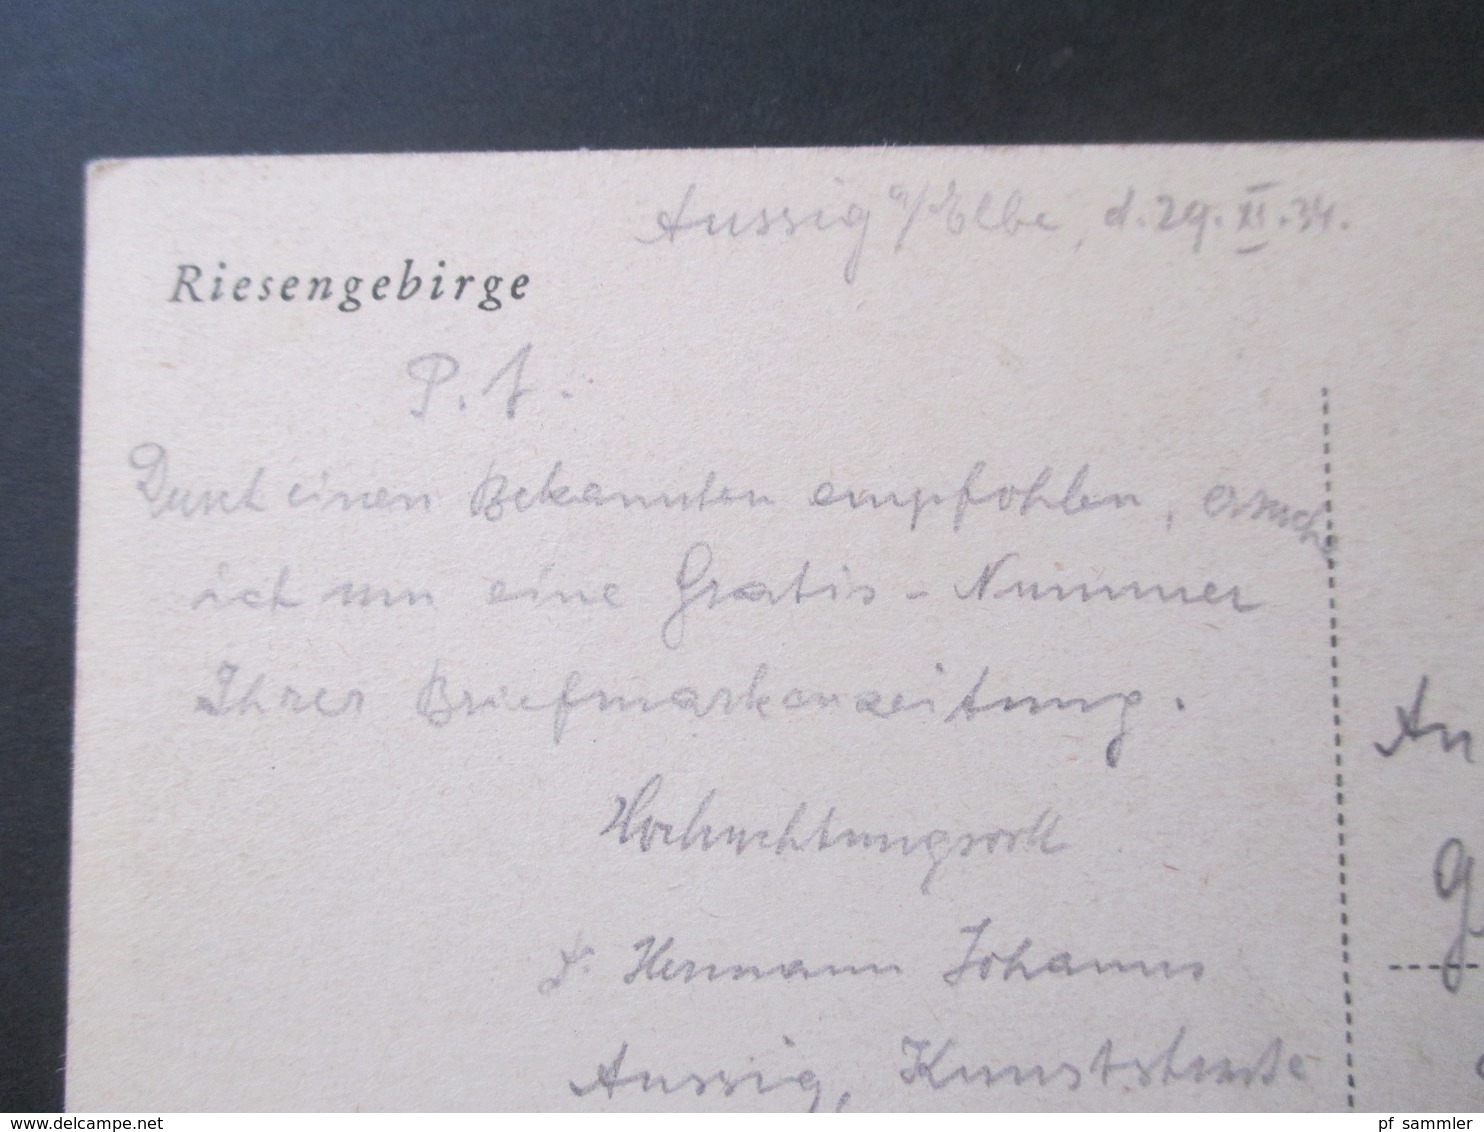 Aussig a/Elbe, d. 29. XI. 34.
Riesengebirge
P. T.
Durch einen Bekannten empfohlen, ersuche
ich um eine Gratis-Nummer
Ihrer Briefmarkenzeitung.
Hochachtungsvoll
Hermann Johannes
Aussig,
An
pf sammler
www.delcampe.net